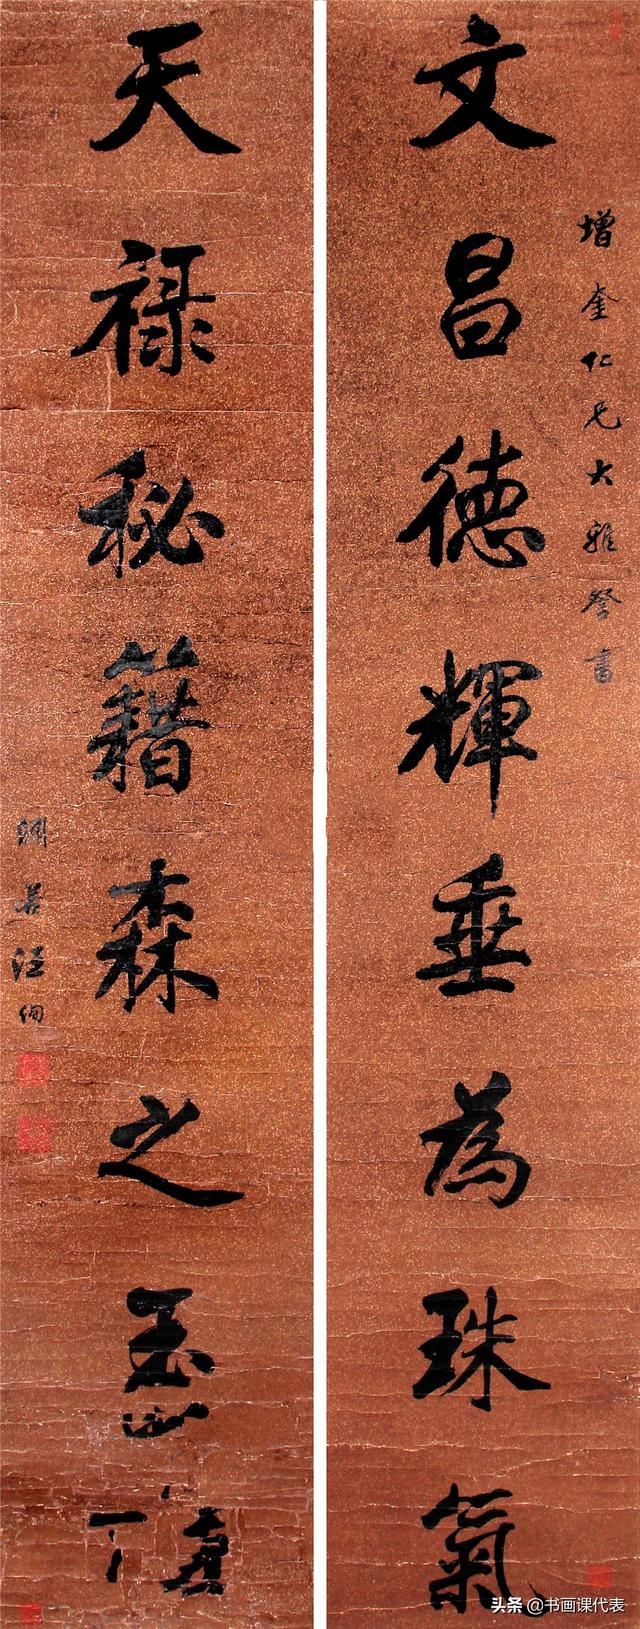 增奎仁兄大雅詧書
文昌德輝垂為珠氣
天禄秘籍森之玉
淵若汪洵
头条 @书画课代表